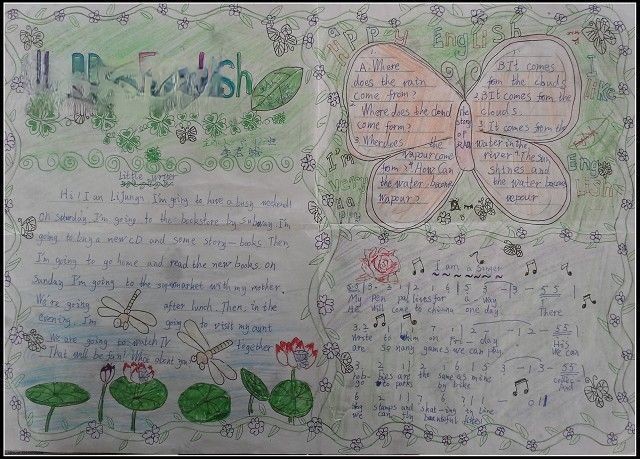 Happy English
Little writer
Hi! I am liJunyi I'm going to have a busy weekend!
On saturday, I'm going to the bookstore by subway. I'm
going to buy a new CD and some story-books Then,
I'm going to go home and read the new books. on
Sunday I'm going to the supermarket with my mother.
We're going after lunch. Then, in the
evening, I'm going to visit my aunt
We are going to watch TV together
That will be fun! What about you
HAPPY English
I like English
I'm very happy
A. Where
does the rain
come from?
Where does the cloud
come form?
3. Where does the
Vapour come
from? How can
the water become
vapour?
The story of RAIN
B: It comes
from the clouds
2. B It comes form the
clouds.
3. It comes from the
water in the
river. The sun
shines and
the water becomes
vepour
I am a singer
My Pen pal lives for a - way There
He will come to china one day
Write to him on Fri - day His
are so many games we can play We can
hob - bies are the same as mine
go to parks by bike And
stamps and in line